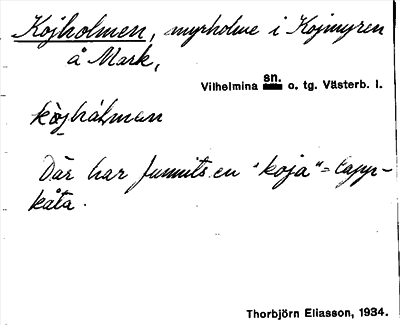 Kojholmen, myrholme i Kojmyren
å Mark,
Vilhelmina sn. o. tg. Västerb. l.
kòj̀hålman
Där har funnits en "koja" = lapp-
kåta.
Thorbjörn Eliasson, 1934.